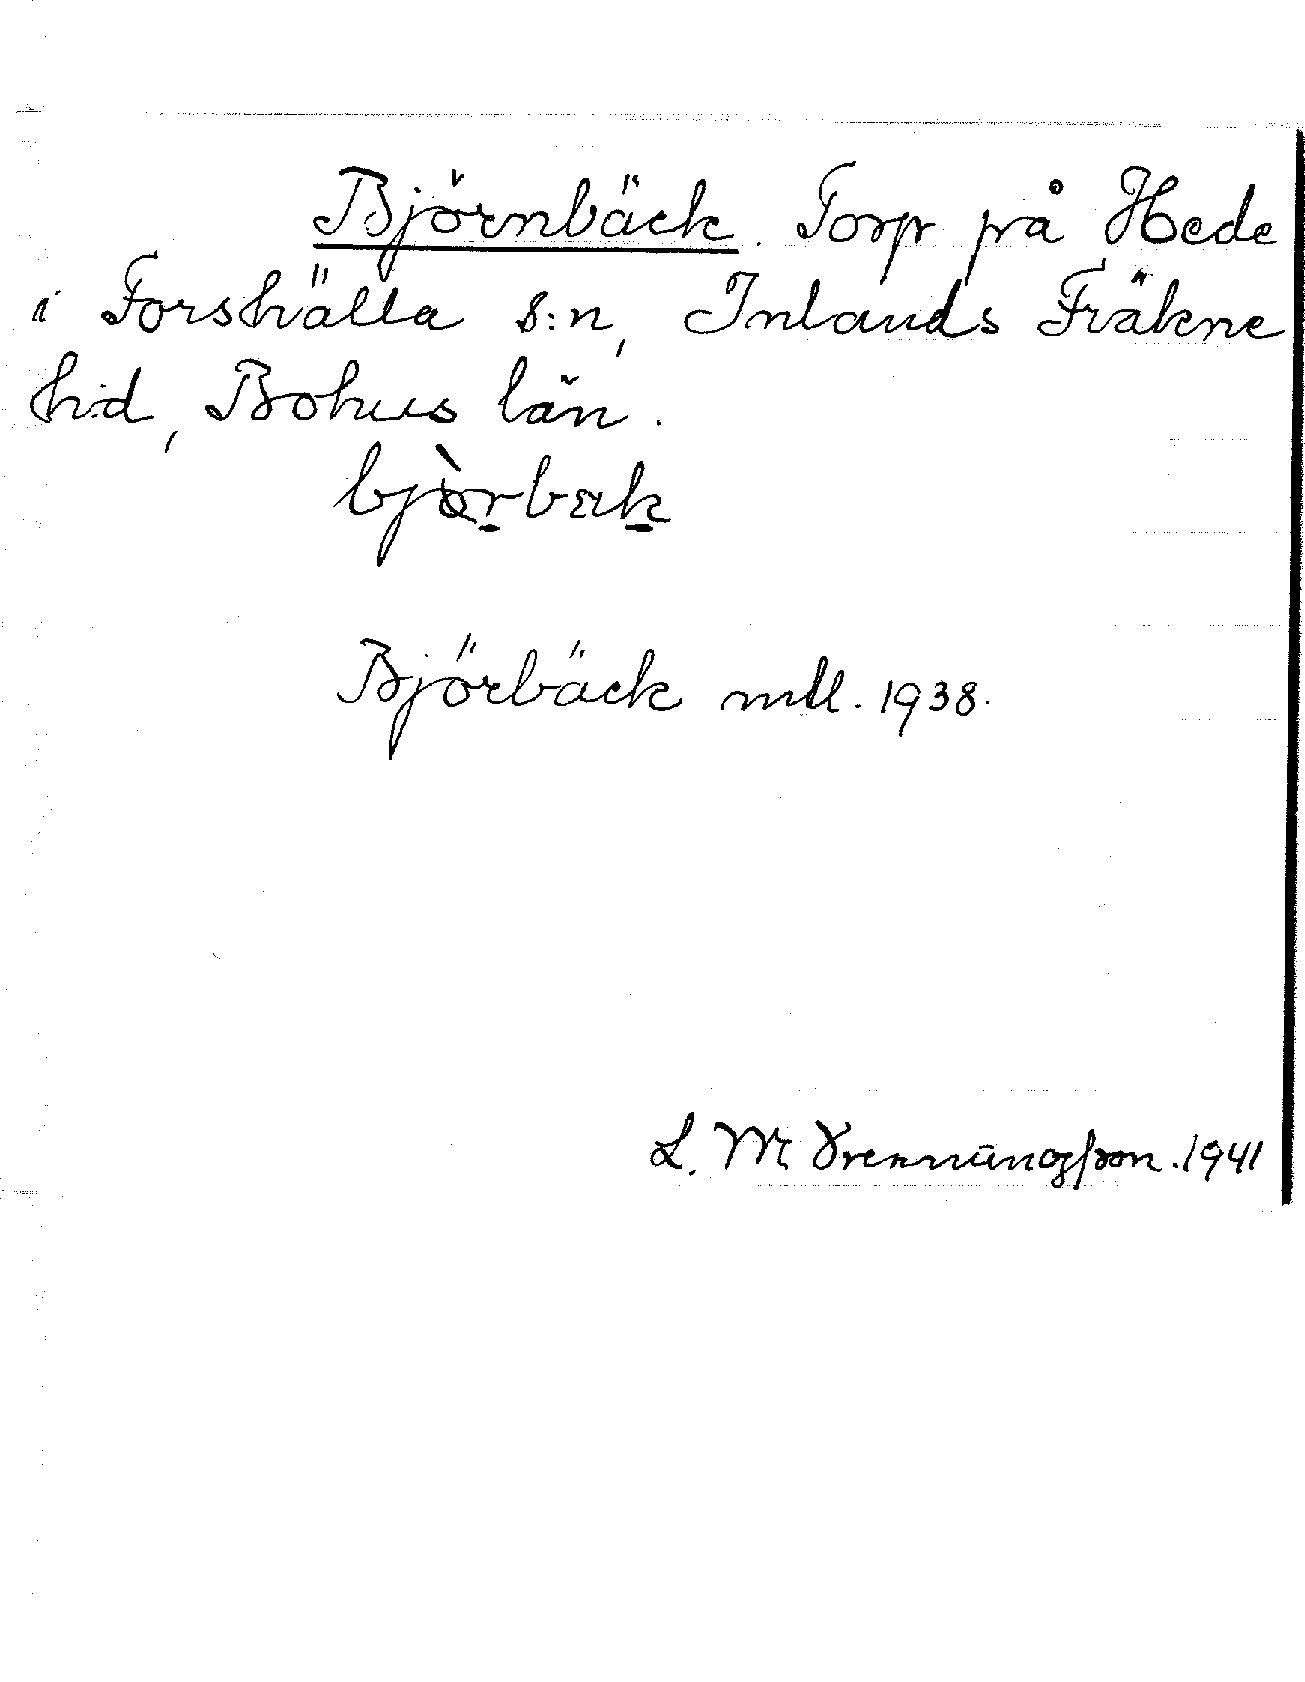 Björnbäck. Torp på Hede
i Forshälla s:n, Inlands Fräkne
hd, Bohus län.
bjòrbæk
Björbäck mtl. 1938.
L. M. 1941